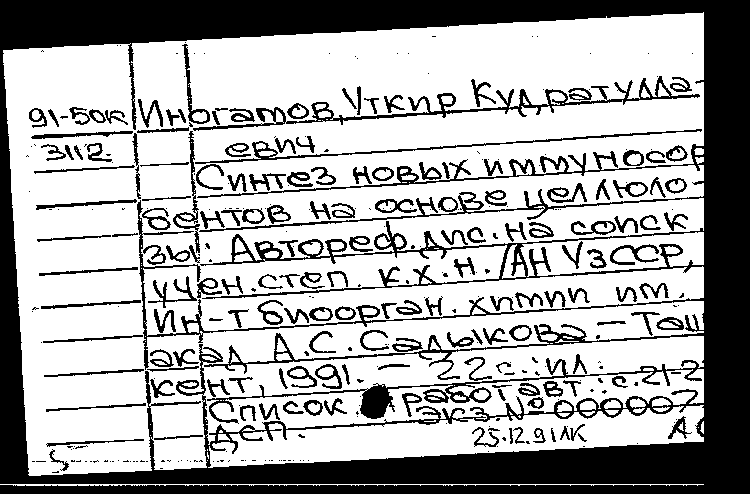 91-50к Иногатов, Уткир Кудратулла-
3112 евич.
Синтез новых иммуносор
бентов на основе целлюло-
зы: Автореф.дис.на соиск.
учен.степ. к.х.н./АН УзССР,
Ин-т биоорган. химии им.
акад А.С.Садыкова.- Таш
кент, 1991. - 22с.:ил.
Список работ авт.: с.21-2
ДСП. экз.№000007
25.12.91ЛК